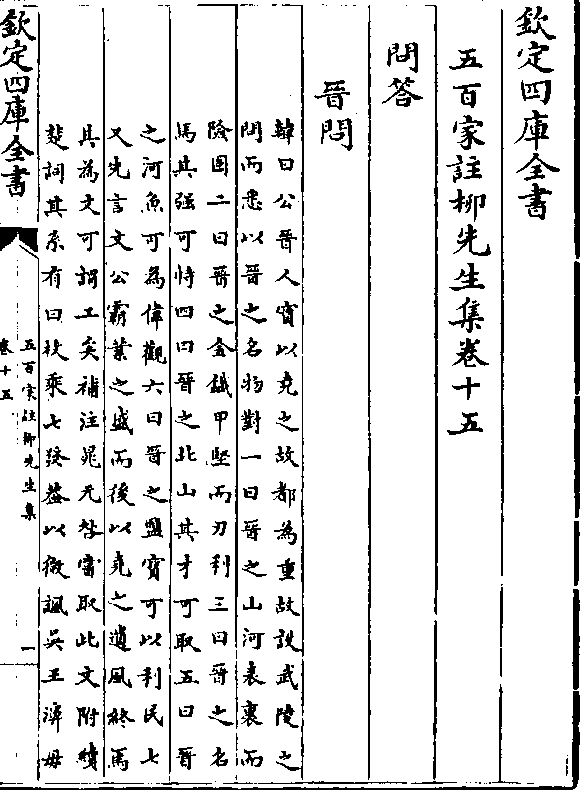 欽定四庫全書
五百家註栁先生集卷十五
問答
晉問
韓曰公晉人實以堯之故都為重故設武陵之
問而悉以晉之名物對一曰晉之山河表裏而
險固二曰晉之金鐵甲堅而刃利三曰晉之名
馬其强可恃四曰晉之北山其才可取五曰晉
之河魚可為偉觀六曰晉之鹽寶可以利民七
又先言文公霸業之盛而後以堯之遺風終焉
其為文可謂工矣補注晁无咎嘗取此文附續
楚詞其系有曰枚乘七發葢以微諷吳王濞毋
欽定四庫全書
五百家註栁先生集
卷十五
一